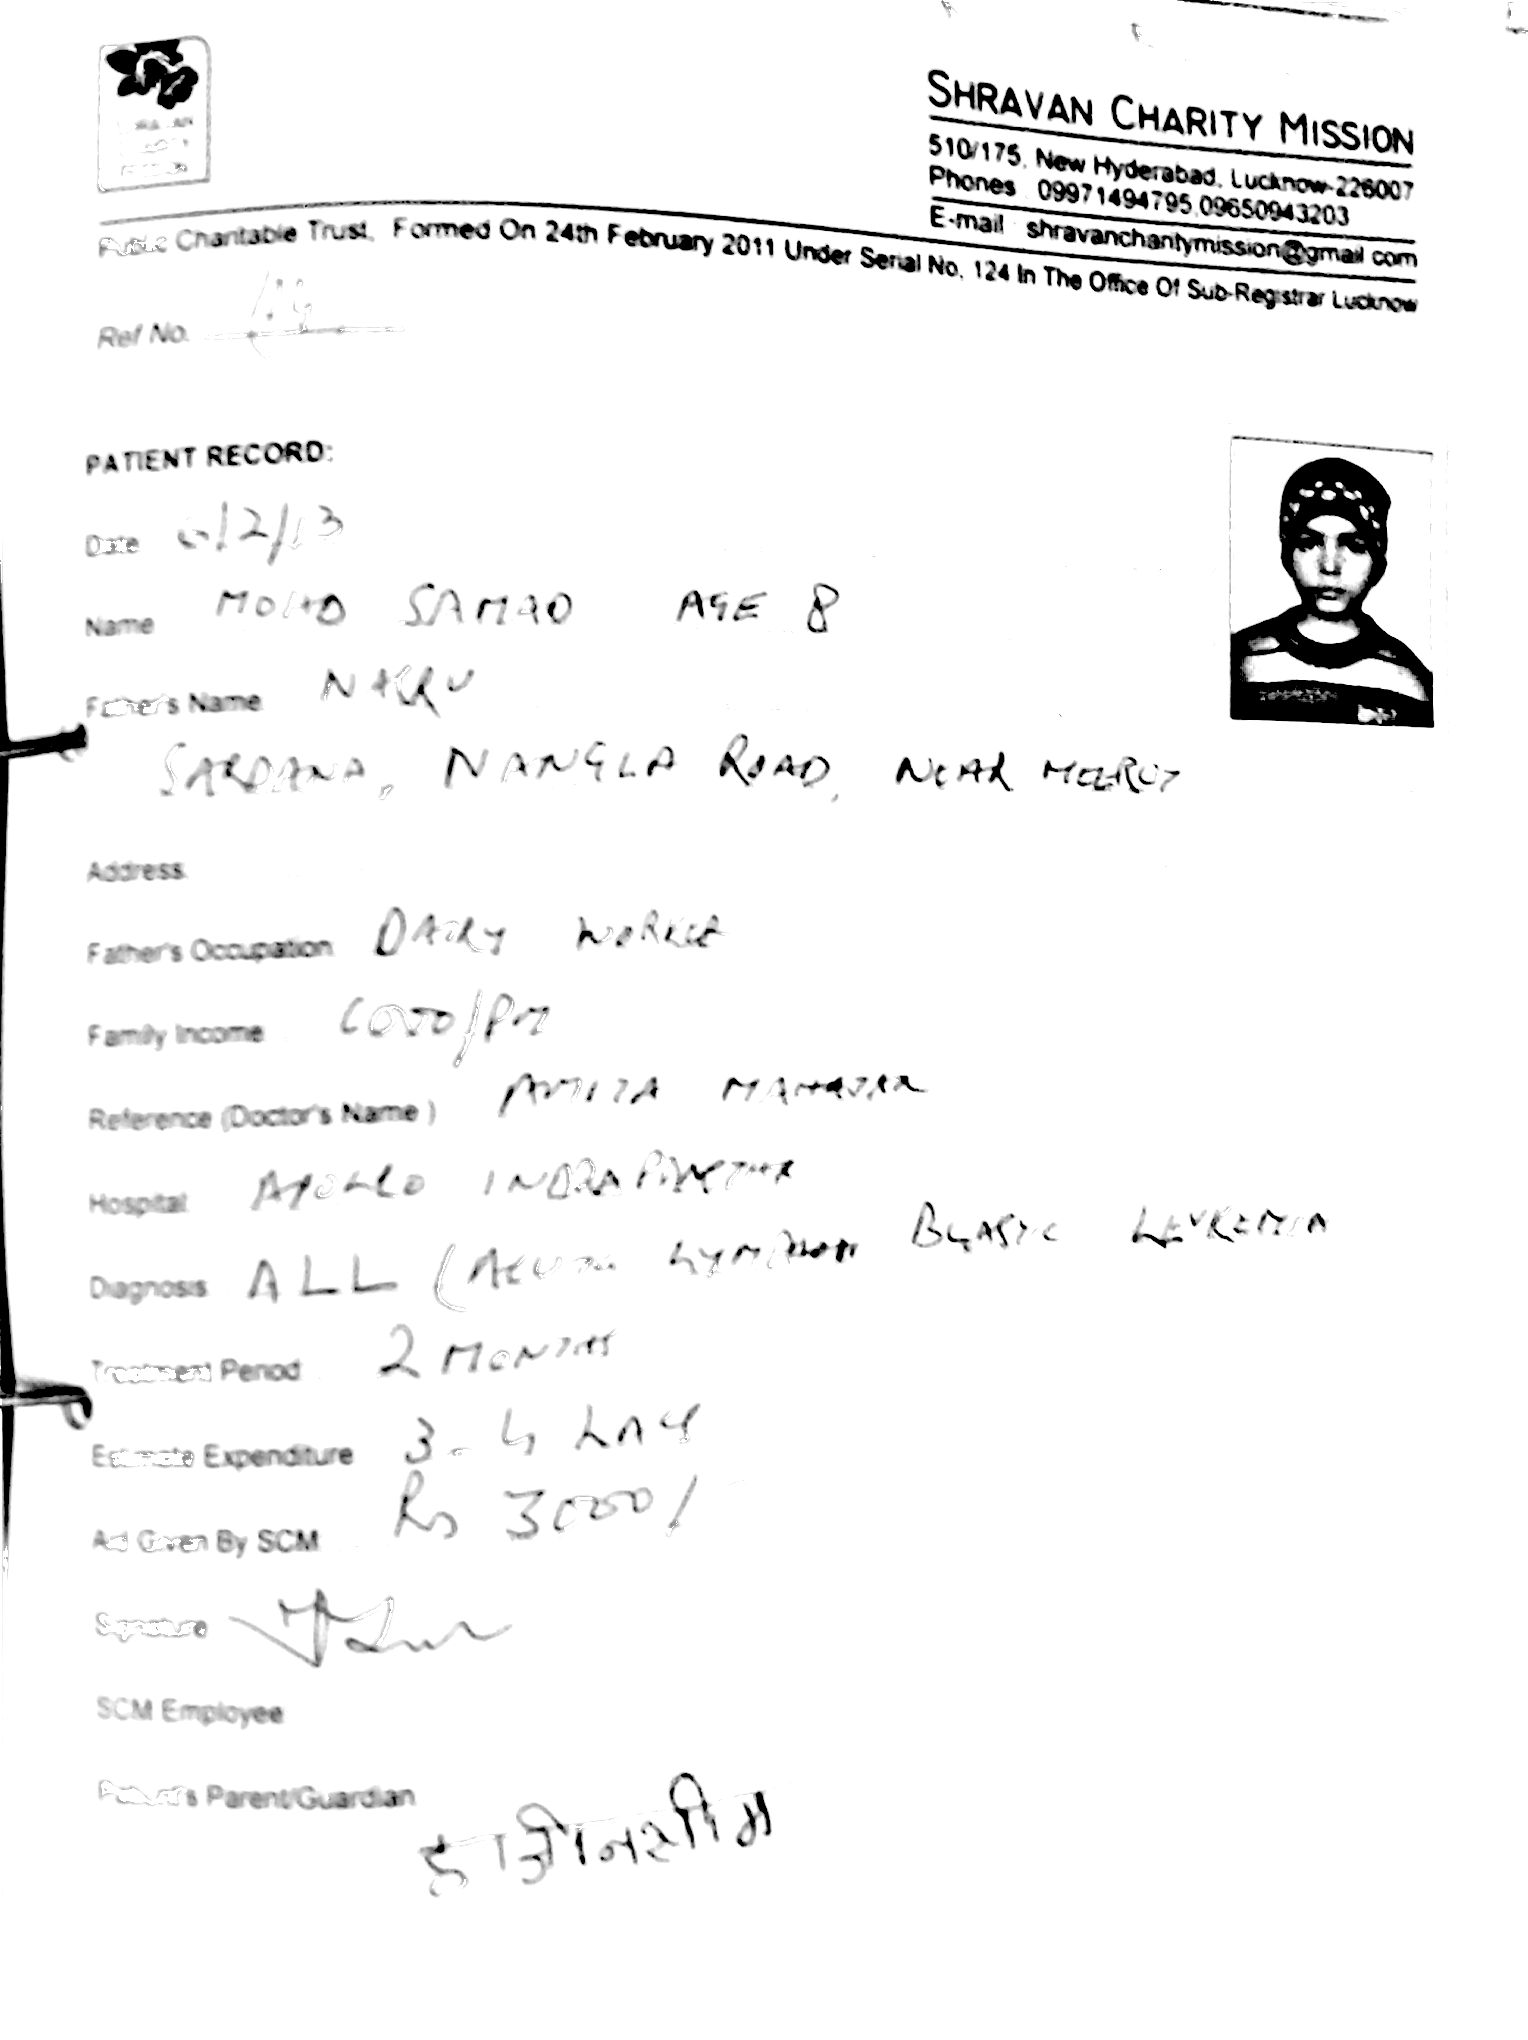 SHRAVAN CHARITY MISSION
510/175, New Hyderabad, Lucknow-226007
Phones : 09971494795,09650943203
E-mail : shravancharitymission@gmail.com
Public Charitable Trust, Formed On 24th February 2011 Under Serial No. 124 In The Office Of Sub-Registrar Lucknow
Ref No.
PATIENT RECORD:
Date /2/13
Name MOHD SAMAD AGE 8
Father's Name
SARDANA, NANGLA ROAD, NEAR MEERUT
Address
Father's Occupation DAIRY WORKER
Family Income /PM
Reference (Doctor's Name ) AMITA MAHAJAN
Hospital APOLLO INDRAPRASTHA
Diagnosis ALL (ACUTE BLASTIC LEUKEMIA
Treatment Period 2 MONTHS
Estimate Expenditure 3-4 LAC
Aid Given By SCM Rs
Signature
SCM Employee
Patient's Parent/Guardian